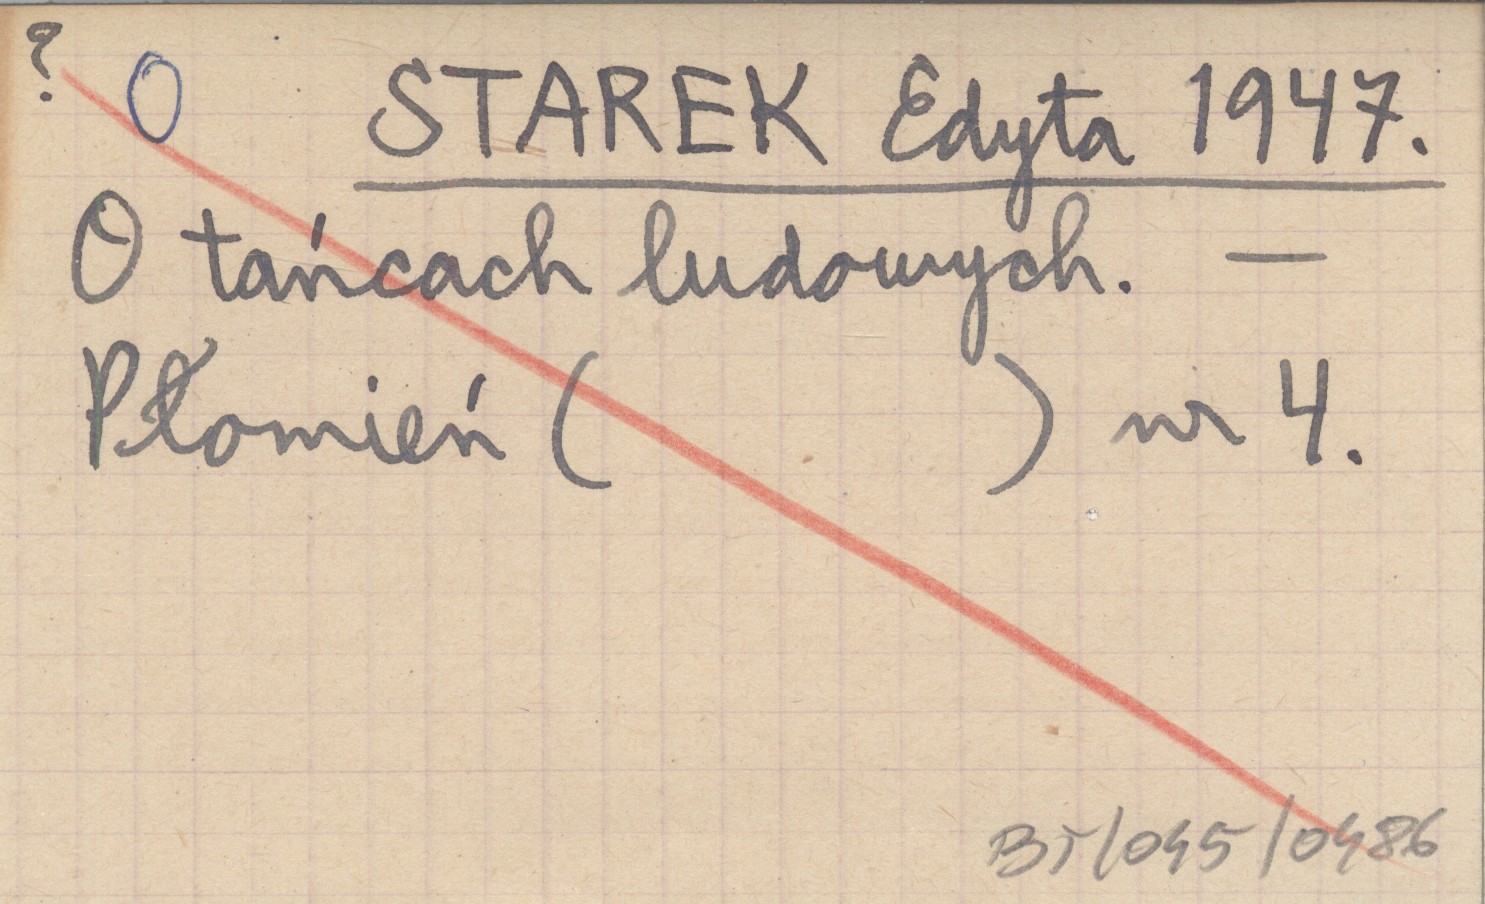 ? O STAREK Edyta 1947.
O tańcach ludowych. —
Płomień ( ) nr 4.
BT/045/0486